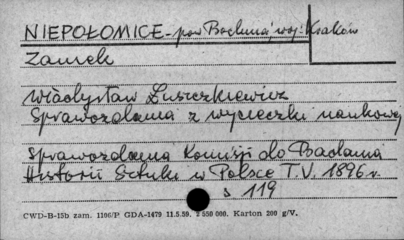 NIEPOŁOMICE - pow. Bochnia, woj. Kraków
Zamek
Władysław Łuszczkiewicz
Sprawozdania z wycieczki naukowej
Sprawozdania Komisji do Badania
Historii Sztuki w Polsce T.V. 1896 r.
s 119
CWD-B-15b zam. 1106/P GDA-1479 11.5.59. 2 550 000. Karton 200 g/V.